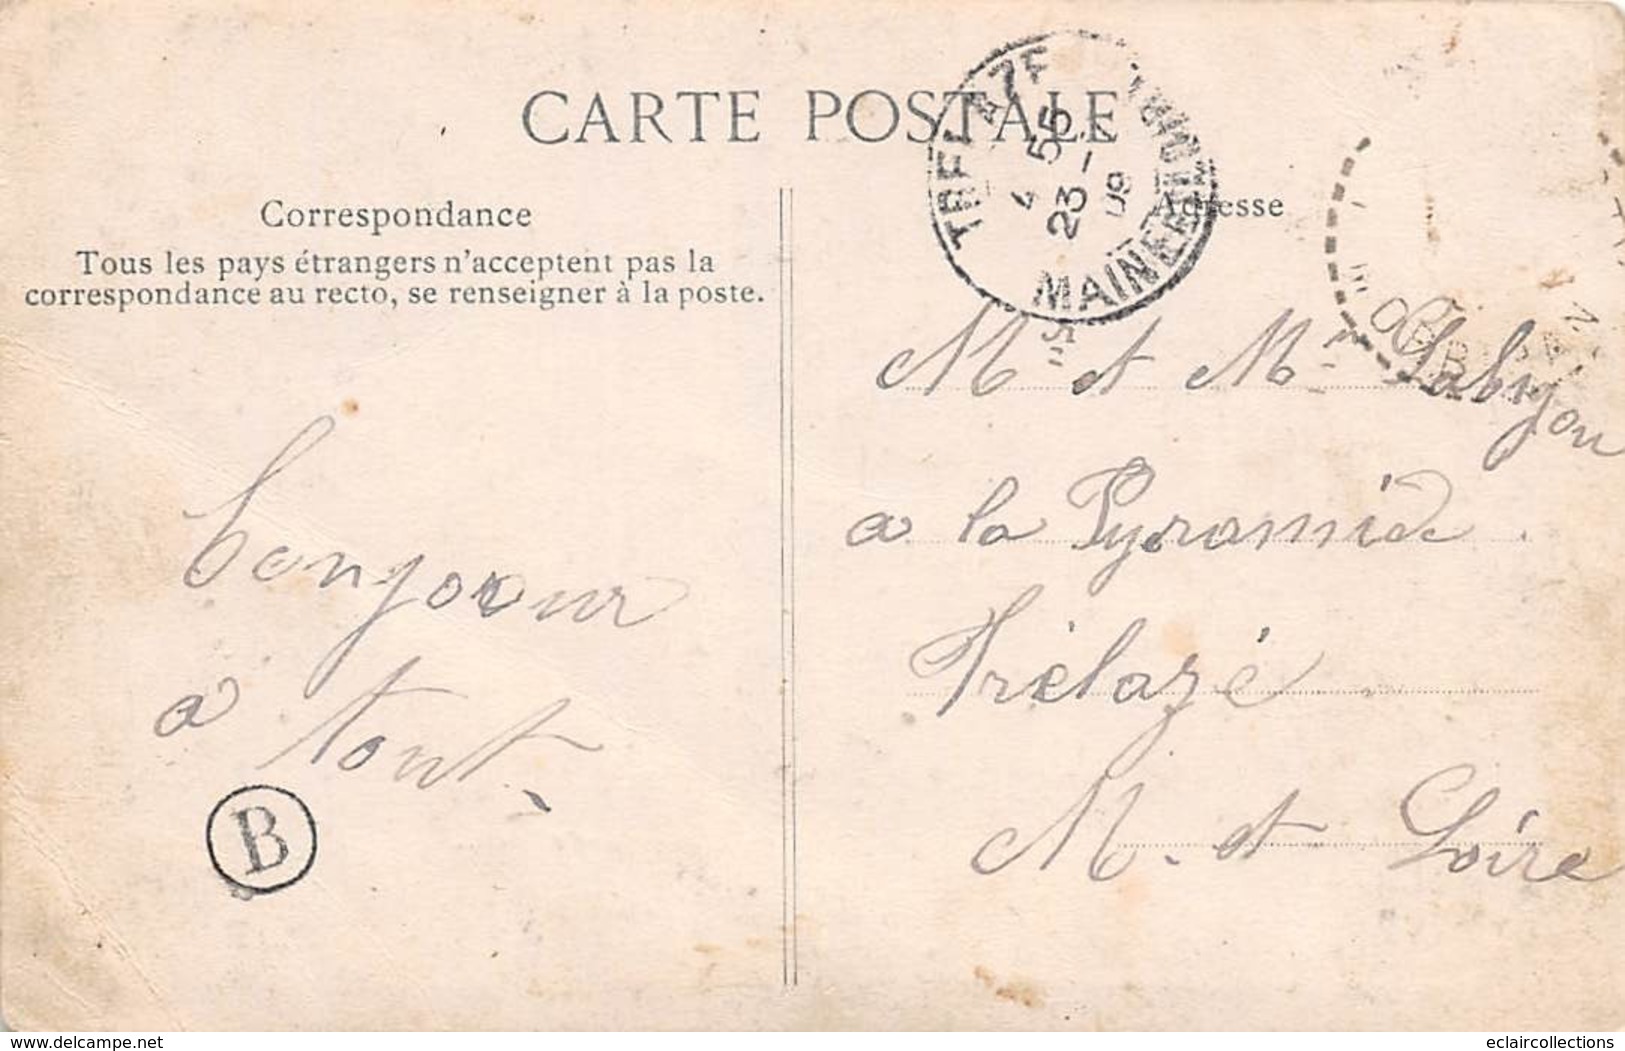 CARTE POSTALE
Correspondance
Tous les pays étrangers n'acceptent pas la
correspondance au recto, se renseigner à la poste.
Adresse
TRELAZE
4 55
23 -
09
MAINE
M et Mme
a la Pyramide
Trélazé
M. et Loire
bonjour
a tout
B
delcampe.net
eclaircollections